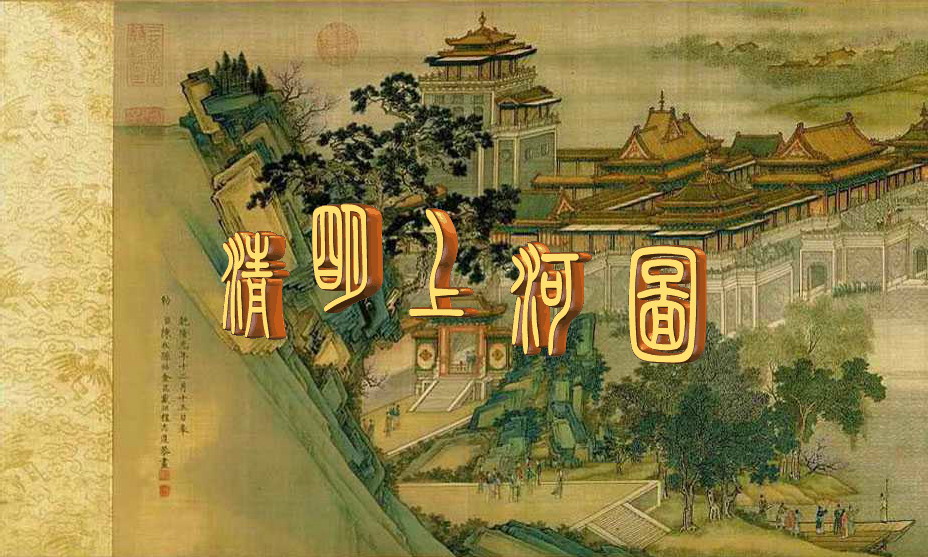 清明上河圖
乾隆元年十二月十五日奉
勅
臣陳枚孫祜金昆戴洪程志道恭畫